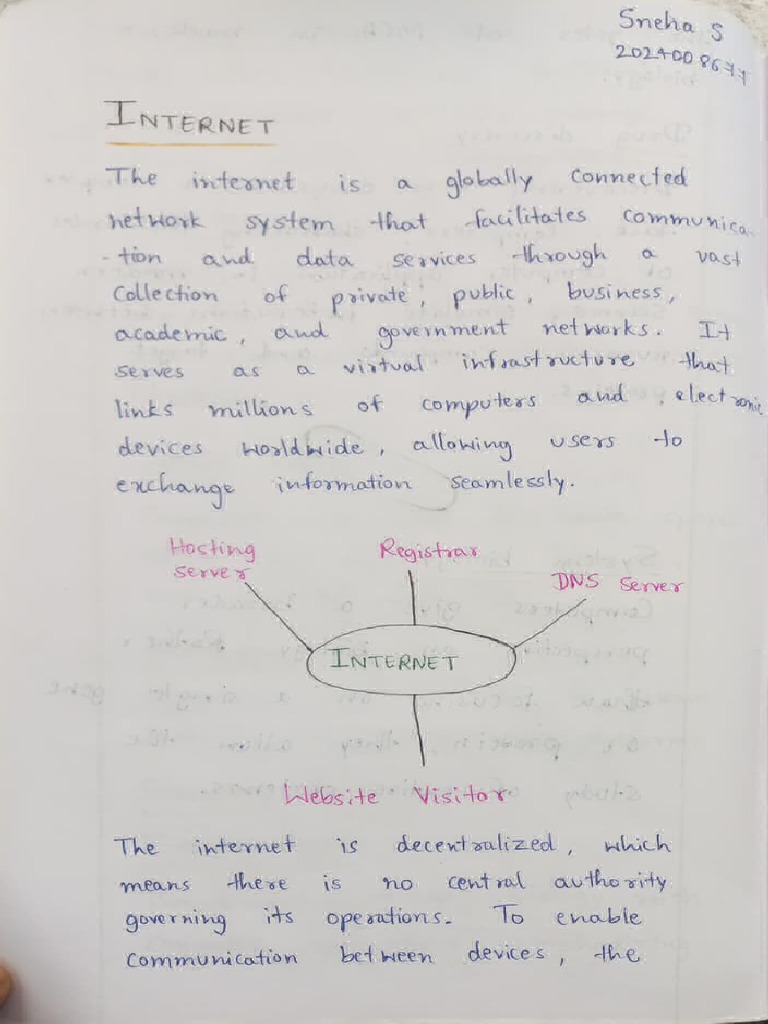 Sneha S
INTERNET
The internet is a globally connected
network system that facilitates communica
-tion and data services through a vast
Collection of private, public, business,
academic, and government networks. It
serves as a virtual infrastructure that
links millions of computers and electronic
devices worldwide, allowing users to
exchange information seamlessly.
Hosting Server
Registrar
DNS Server
INTERNET
Website Visitor
The internet is decentralized, which
means there is no central authority
governing its operations. To enable
communication between devices, the